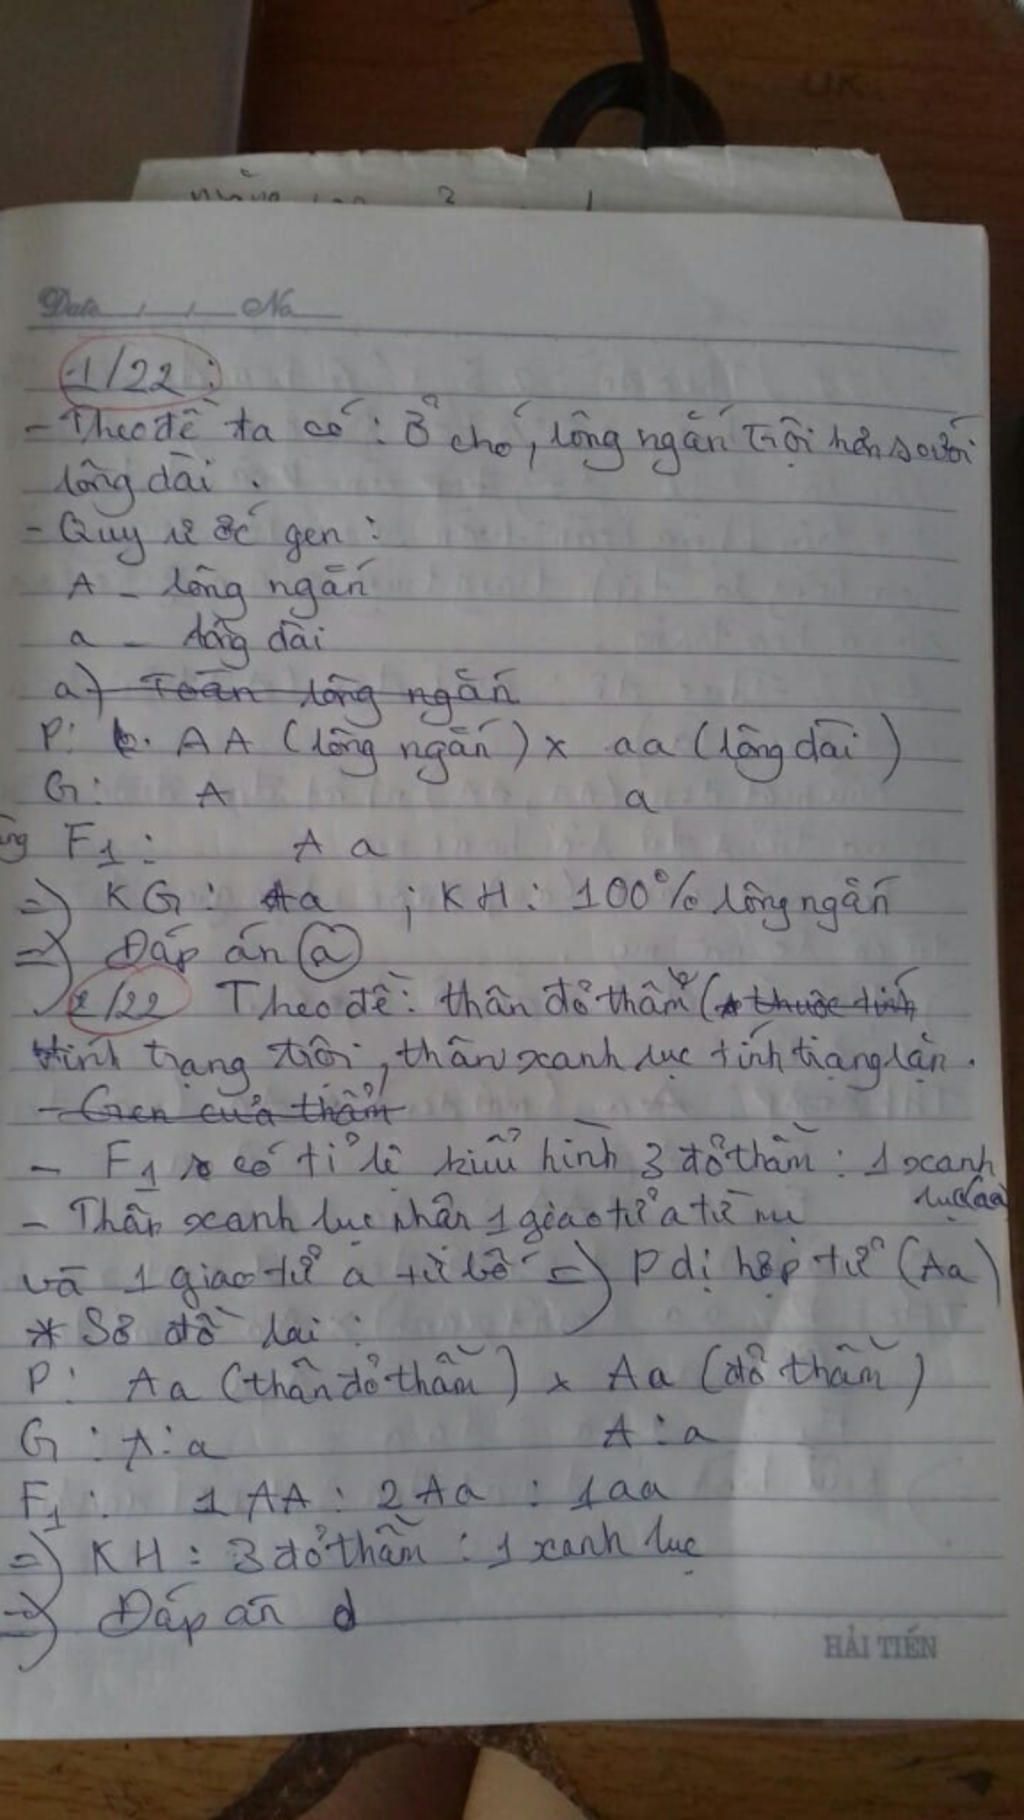 Date / / No
1/22 :
- Theo đề ta có : Ở chó, lông ngắn trội hơn so với
lông dài .
- Quy ước gen :
A - lông ngắn
a - lông dài
a) Toàn lông ngắn
P: AA (lông ngắn) x aa (lông dài)
G: A a
F1 : Aa
=> KG : Aa ; KH : 100% lông ngắn
=> Đáp án a
2/22 Theo đề: thân đỏ thẫm ( thuộc tính
tính trạng trội, thân xanh lục tính trạng lặn .
- Gen của thẫm
- F1 có tỉ lệ kiểu hình 3 đỏ thẫm : 1 xanh
lục (aa)
- Thân xanh lục nhân 1 giao tử a từ mẹ
và 1 giao tử a từ bố => P dị hợp tử (Aa)
* Sơ đồ lai :
P: Aa (thân đỏ thẫm) x Aa (đỏ thẫm)
G : A : a A : a
F1 : 1 AA : 2 Aa : 1 aa
=> KH : 3 đỏ thẫm : 1 xanh lục
=> Đáp án d
HẢI TIẾN